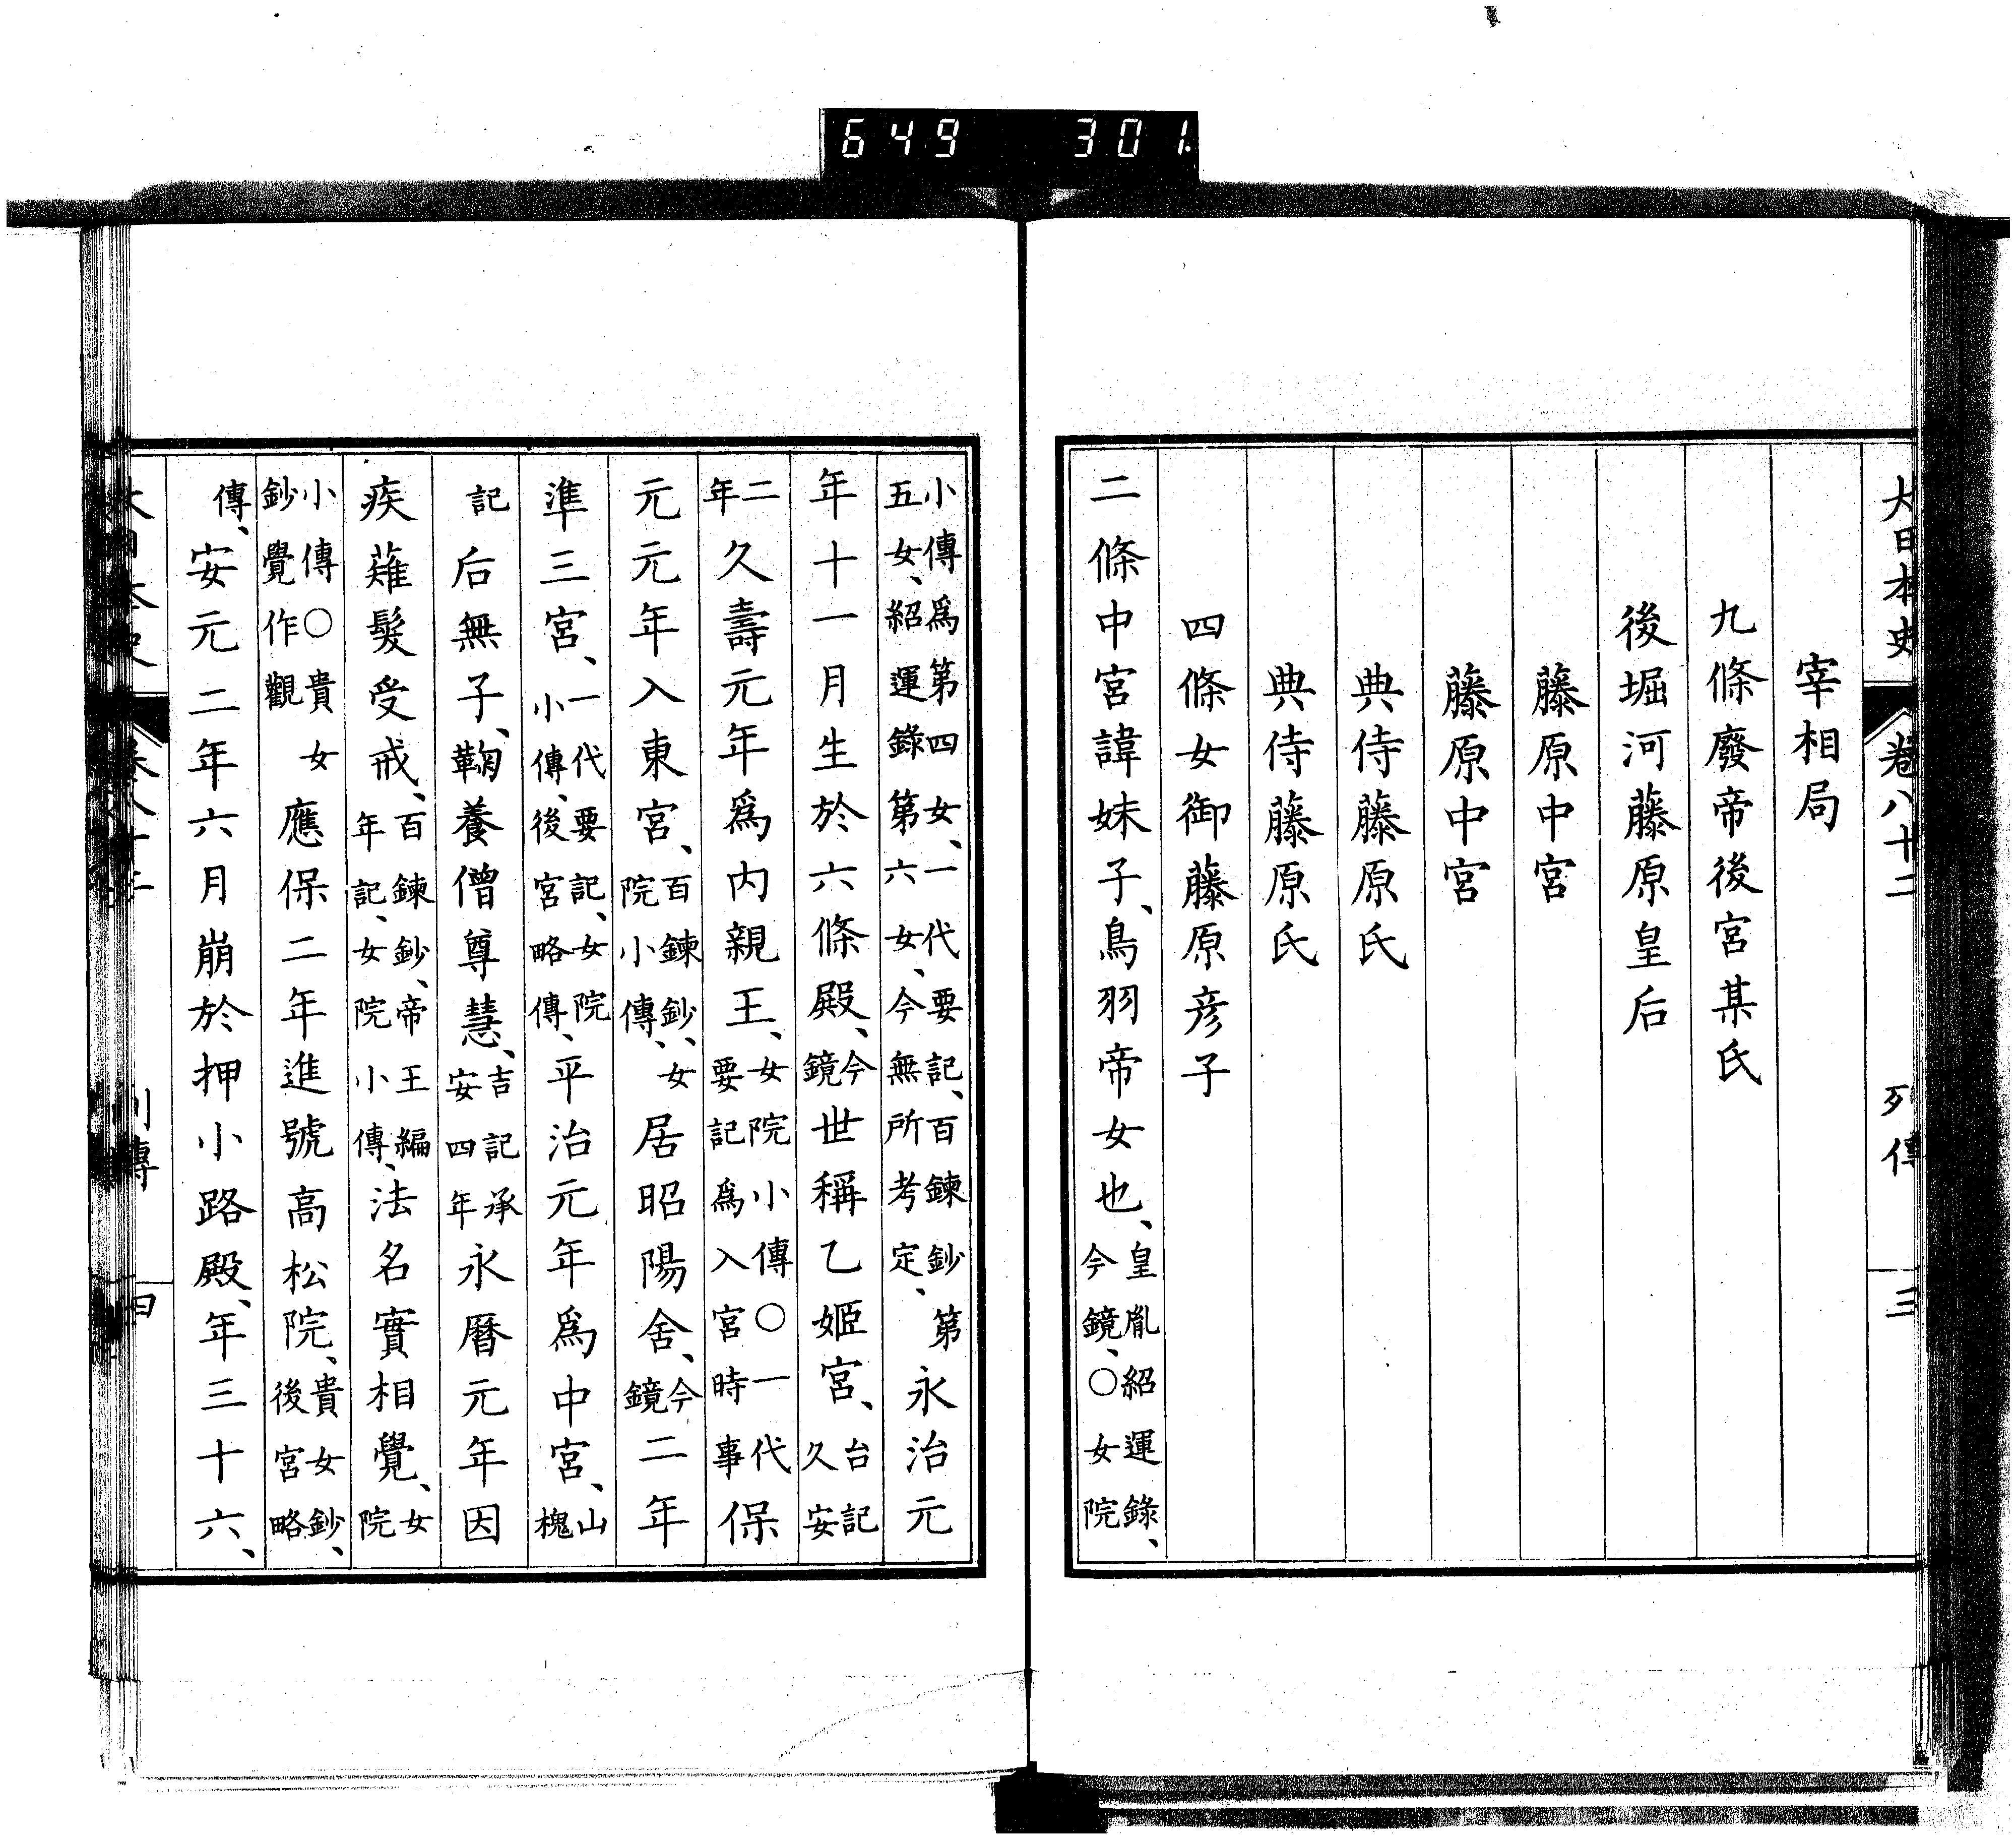 649 301
大日本史 卷八十二 列傳 三
宰相局
九條廢帝後宮某氏
後堀河藤原皇后
藤原中宮
藤原中宮
典侍藤原氏
典侍藤原氏
四條女御藤原彦子
二條中宮諱姝子、鳥羽帝女也、皇胤紹運錄、今鏡、○女院
小傳爲第四女、一代要記、百鍊鈔第五女、紹運錄第六女、今無所考定、永治元
年十一月生於六條殿、今鏡世稱乙姬宮、台記久安
二年久壽元年爲內親王、女院小傳○一代要記爲入宮時事保
元元年入東宮、百鍊鈔、女院小傳、居昭陽舍、今鏡二年
準三宮、一代要記、女院小傳、後宮略傳、平治元年爲中宮、山槐
記后無子、鞠養僧尊慧、吉記承安四年永曆元年因
疾薙髮受戒、百鍊鈔、帝王編年記、女院小傳、法名實相覺、女院
小傳○貴女鈔覺作觀應保二年進號高松院、貴女鈔、後宮略
傳、安元二年六月崩於押小路殿、年三十六、